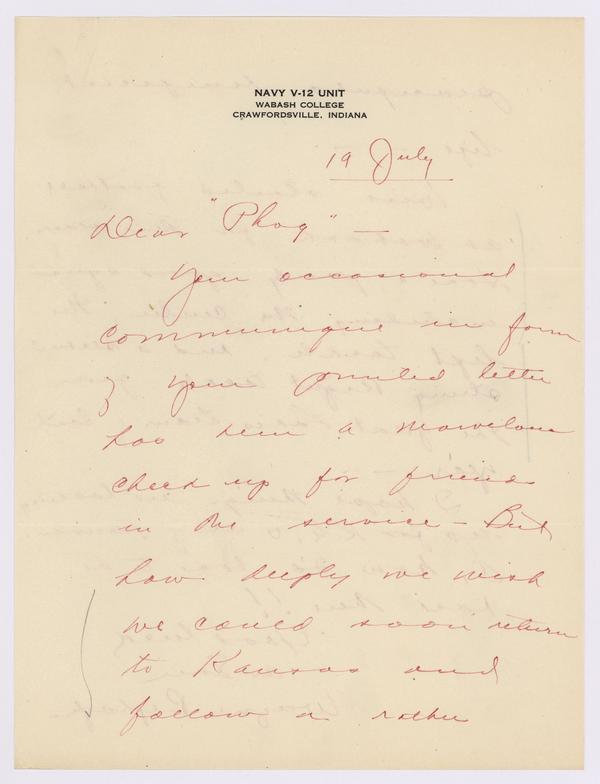 NAVY V-12 UNIT
WABASH COLLEGE
CRAWFORDSVILLE, INDIANA
19 July
Dear "Phog" —
Your occasional
communique in form
of your printed letter
has been a marvelous
check up for friends
in the service — But
how deeply we wish
we could soon return
to Kansas and
follow a rather